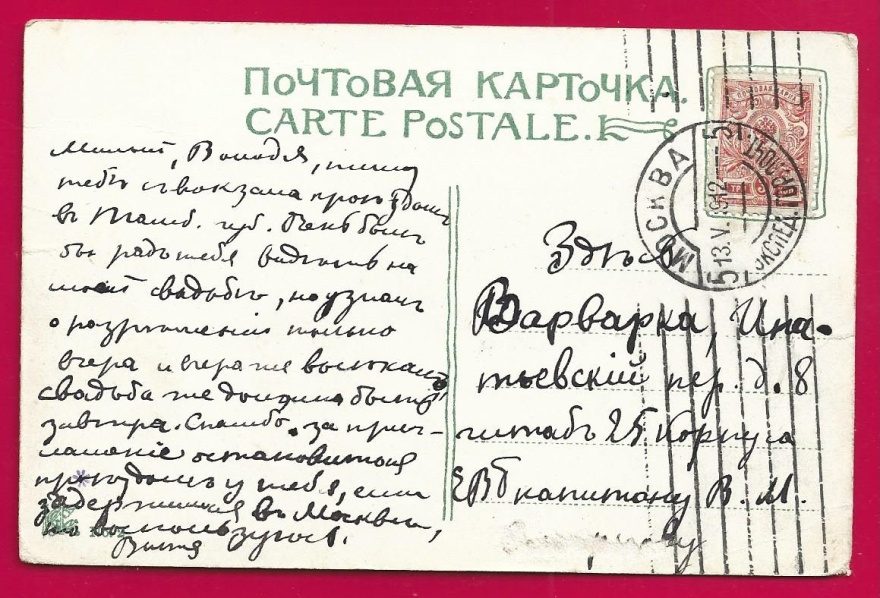 ПОЧТОВАЯ КАРТОЧКА.
CARTE POSTALE.
Милый, Володя, пишу
тебѣ с вокзала проѣздомъ
въ Тамб. губ. Какъ былъ
бы радъ тебя видѣть на
моей свадьбѣ, но узналъ
о разрѣшеніи только
вчера и вчера же выѣхалъ,
свадьба же должна быть
завтра. Спасибо за приг-
лашеніе остановиться
проѣздомъ у тебя, если
задержимся въ Москвѣ,
то воспользуюсь.
Витя
Здѣсь
Варварка, Ипа-
тьевскій пер. д. 8
штабъ 25 Корпуса
ЕВБ капитану В. М.
МОСКВА
13.V.1912
ЭКСПЕД.
ГОР. ПОЧТ.
5
5